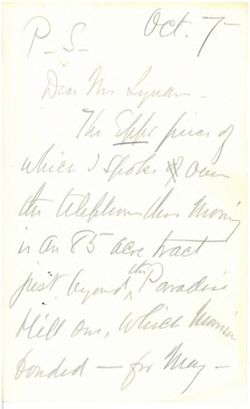 Oct. 7-
P_S_
Dear Mr Lyman_
The Epps piece of
which I spoke over
the telephone this morning
is an 85 acre tract
just beyond the Paradise
Hill one, which
bonded — for May —